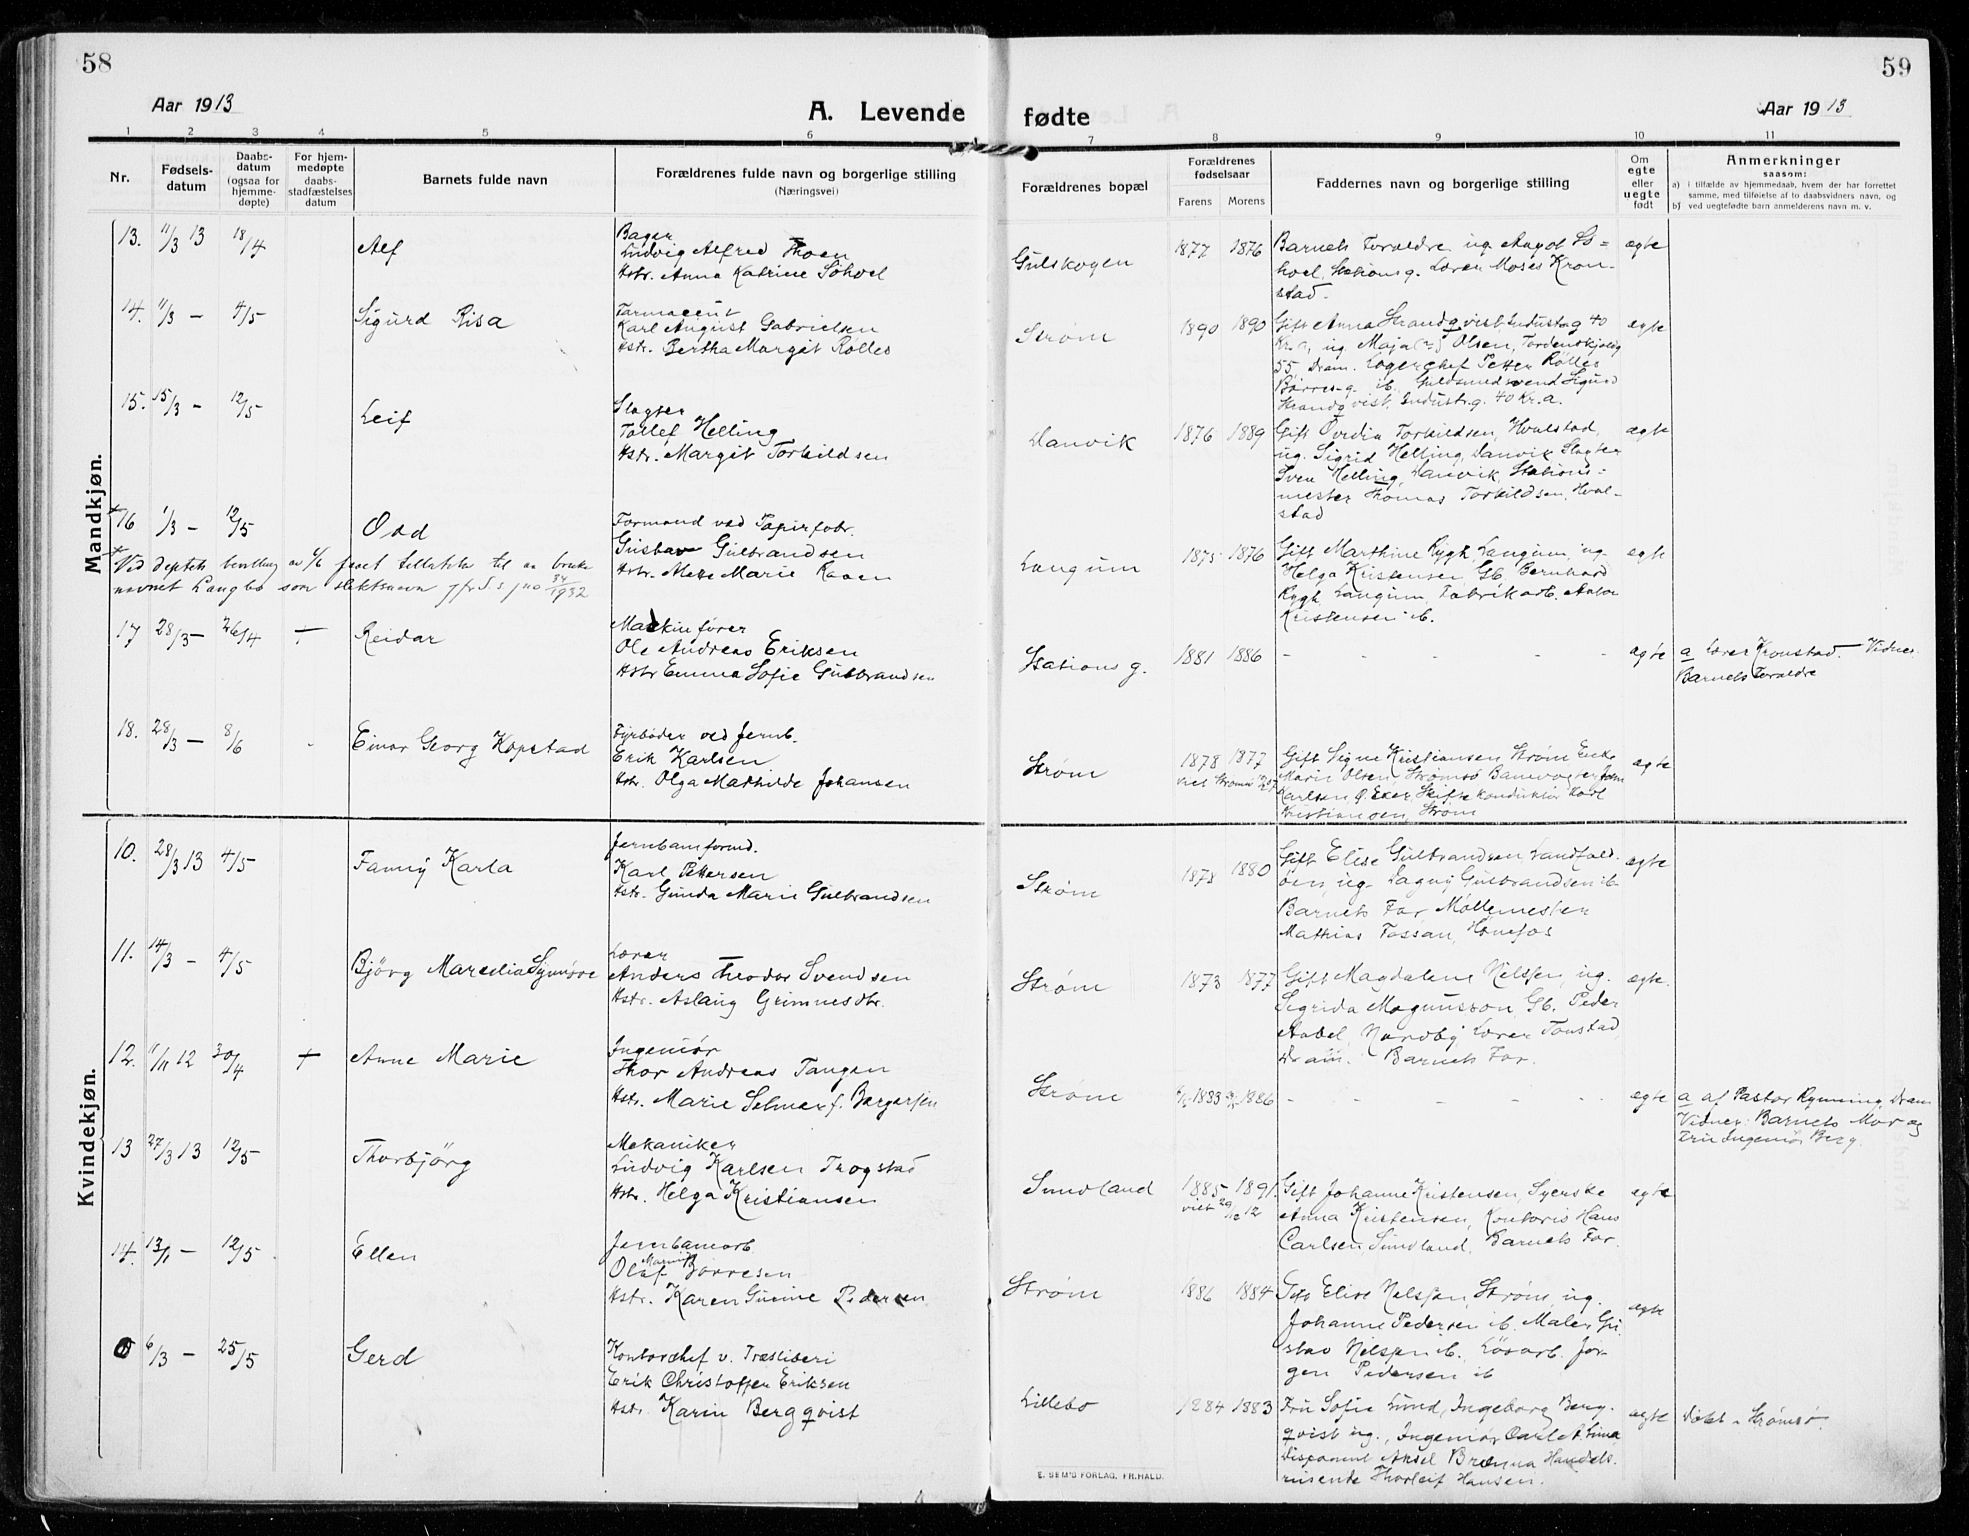 58
59
Aar 1913
A. Levende fødte
Aar 1913
1 2 3 4 5 6 7 8 9 10 11
Nr.
Fødsels-
datum
Daabs-
datum
(ogsaa for
hjemme-
døpte)
For hjem-
medøpte
daabs-
stadfæstelses
datum
Barnets fulde navn
Forældrenes fulde navn og borgerlige stilling
(Næringsvei)
Forældrenes bopæl
Forældrenes
fødselsaar
Farens Morens
Faddernes navn og borgerlige stilling
Om
egte
eller
uegte
født
Anmerkninger
saasom:
a) i tilfælde av hjemmedaab, hvem der har forrettet
samme, med tilføielse af to daabsvidners navn, og
b) ved uegtefødte barn anmelderens navn m. v.
Mandkjøn.
13. 11/3 13 18/4 Alf
Bager
Ludvig Alfred Thoen
Hstr. Anna Katrine Sohoel
Gulskogen 1877 1876
Barnets Foraldre ug. Aagot So=
hoel, Stationsg. Lærer Moses Kron-
stad.
ægte
14. 11/3 — 4/5 Sigurd Risa
Farmaceut
Karl August Gabrielsen
Hstr. Bertha Margit Rølles
Strøm 1890 1890
Gift Anna Strandqvist Industrig 40
Kr.a, ug. Maja (?) Olsen, Tordenskjoldsg
55 Dram. Lagerchef Petter Rølles
Børresg. ib. Guldsmedsvend Sigurd
Strandqvist, Industrig. 40 Kr.a.
ægte
15. 15/3 — 12/5 Leif
Slagter
Tollef Helling
Hstr. Margit Torkildsen
Danvik 1876 1889
Gift Ovidia Torkildsen, Hvalstad,
ug. Sigrid Helling, Danvik Slagter
Sven Helling, Danvik, Stations-
mester Thomas Torkildsen, Hval-
stad
ægte
+16 1/3 — 12/5 Odd
Formand ved Papirfabr.
Gustav Gulbrandsen
Hstr. Mette Marie Kaaen
Langum 1875 1876
Gift Marthine Rygh Langum, ug.
Helga Kristensen, Gb. Bernhard
Rygh, Langum, Fabrikarb. Anton
Kristensen ib.
ægte
+ Ved deptets bevilling av 4/6 faaet tillatelse til aa bruke
navnet Langbo som slektsnavn jfr. J. s. j no 34/1932
17 28/3 — 26/4 + Reidar
Maskinfører
Ole Andreas Eriksen
Hstr Emma Sofie Gulbrandsen
Stationsg. 1881 1886 - - - -
ægte
a Lærer Kronstad. Vidner
Barnets Foraldre
18. 28/3 — 8/6 - Einar Georg Kopstad
Fyrbøder ved Jernb.
Erik Karlsen
Hstr. Olga Mathilde Johansen
Strøm 1878 1877
Gift Signe Kristiansen Strøm Enke
Marie Olsen Strømsø Banevogter
Karlsen Ø. Eker, Skiftekonduktør Karl
Kristiansen, Strøm
ægte
Kvindekjøn.
10. 28/3 13 4/5 Fanny Karla
Jernbaneformd.
Karl Pettersen
Hstr. Gunda Marie Gulbrandsen
Strøm 1878 1880
Gift Elise Gulbrandsen Landfald-
øen, ug. Dagny Gulbrandsen ib.
Barnets Far Møllemester
Mathias Fossan, Hønefos
ægte
11. 14/3 — 4/5 Björg Maredia Synnöve
Lærer
Anders Theodor Svendsen
Hstr. Aslaug Grimnesdtr.
Strøm 1873 1877
Gift Magdalene Nilsen, ug.
Sigrida Magnusson Gb. Peder
Aabel, Nordby, Lærer Tonstad,
Dram. Barnets Far.
ægte.
12. 11/11 12 30/4 + Anne Marie
Ingeniør
Thor Andreas Tangen
Hstr. Marie Selmer f. Børgersen
Strøm 1883 1886 - - - -
ægte
a af Pastor Rynning, Dram
Vidner: Barnets Mor og
Fru Ingeniør Berg.
13 27/3 13 12/5 Thorbjörg
Mekaniker
Ludvig Karlsen Trogstad
Hstr. Helga Kristiansen
Sundland 1885 1891.
viet 29/12 12
Gift Johanne Kristensen, Syerske
Anna Kristensen, Kontoris Hans
Carlsen Sundland, Barnets Far.
ægte
14. 13/1 — 12/5 Ellen
Jernbanearb.
Olaf Marius Borresen
Hstr. Karen Gurine Pedersen
Strøm 1886 1884
Gift Elise Nilsen, Strøm, ug.
Johanne Pedersen ib. Maler Gu-
stav Nilsen ib., Løsarb. Jør-
gen Pedersen ib
ægte
6/3 — 25/5 Gerd
Kontorchef v. Træsliberi
Erik Christoffer Eriksen
Hstr. Karin Bergqvist
Lillebo 1884 1883
Fru Sofie Lund, Ingeborg Berg-
qvist ug., Ingeniør Carl A. Lund
Disponent Aksel Brænna Handels-
reisende Thorleif Hansen.
ægte
Døbt i Strømsø
E. SEM'S FORLAG, FR.HALD.